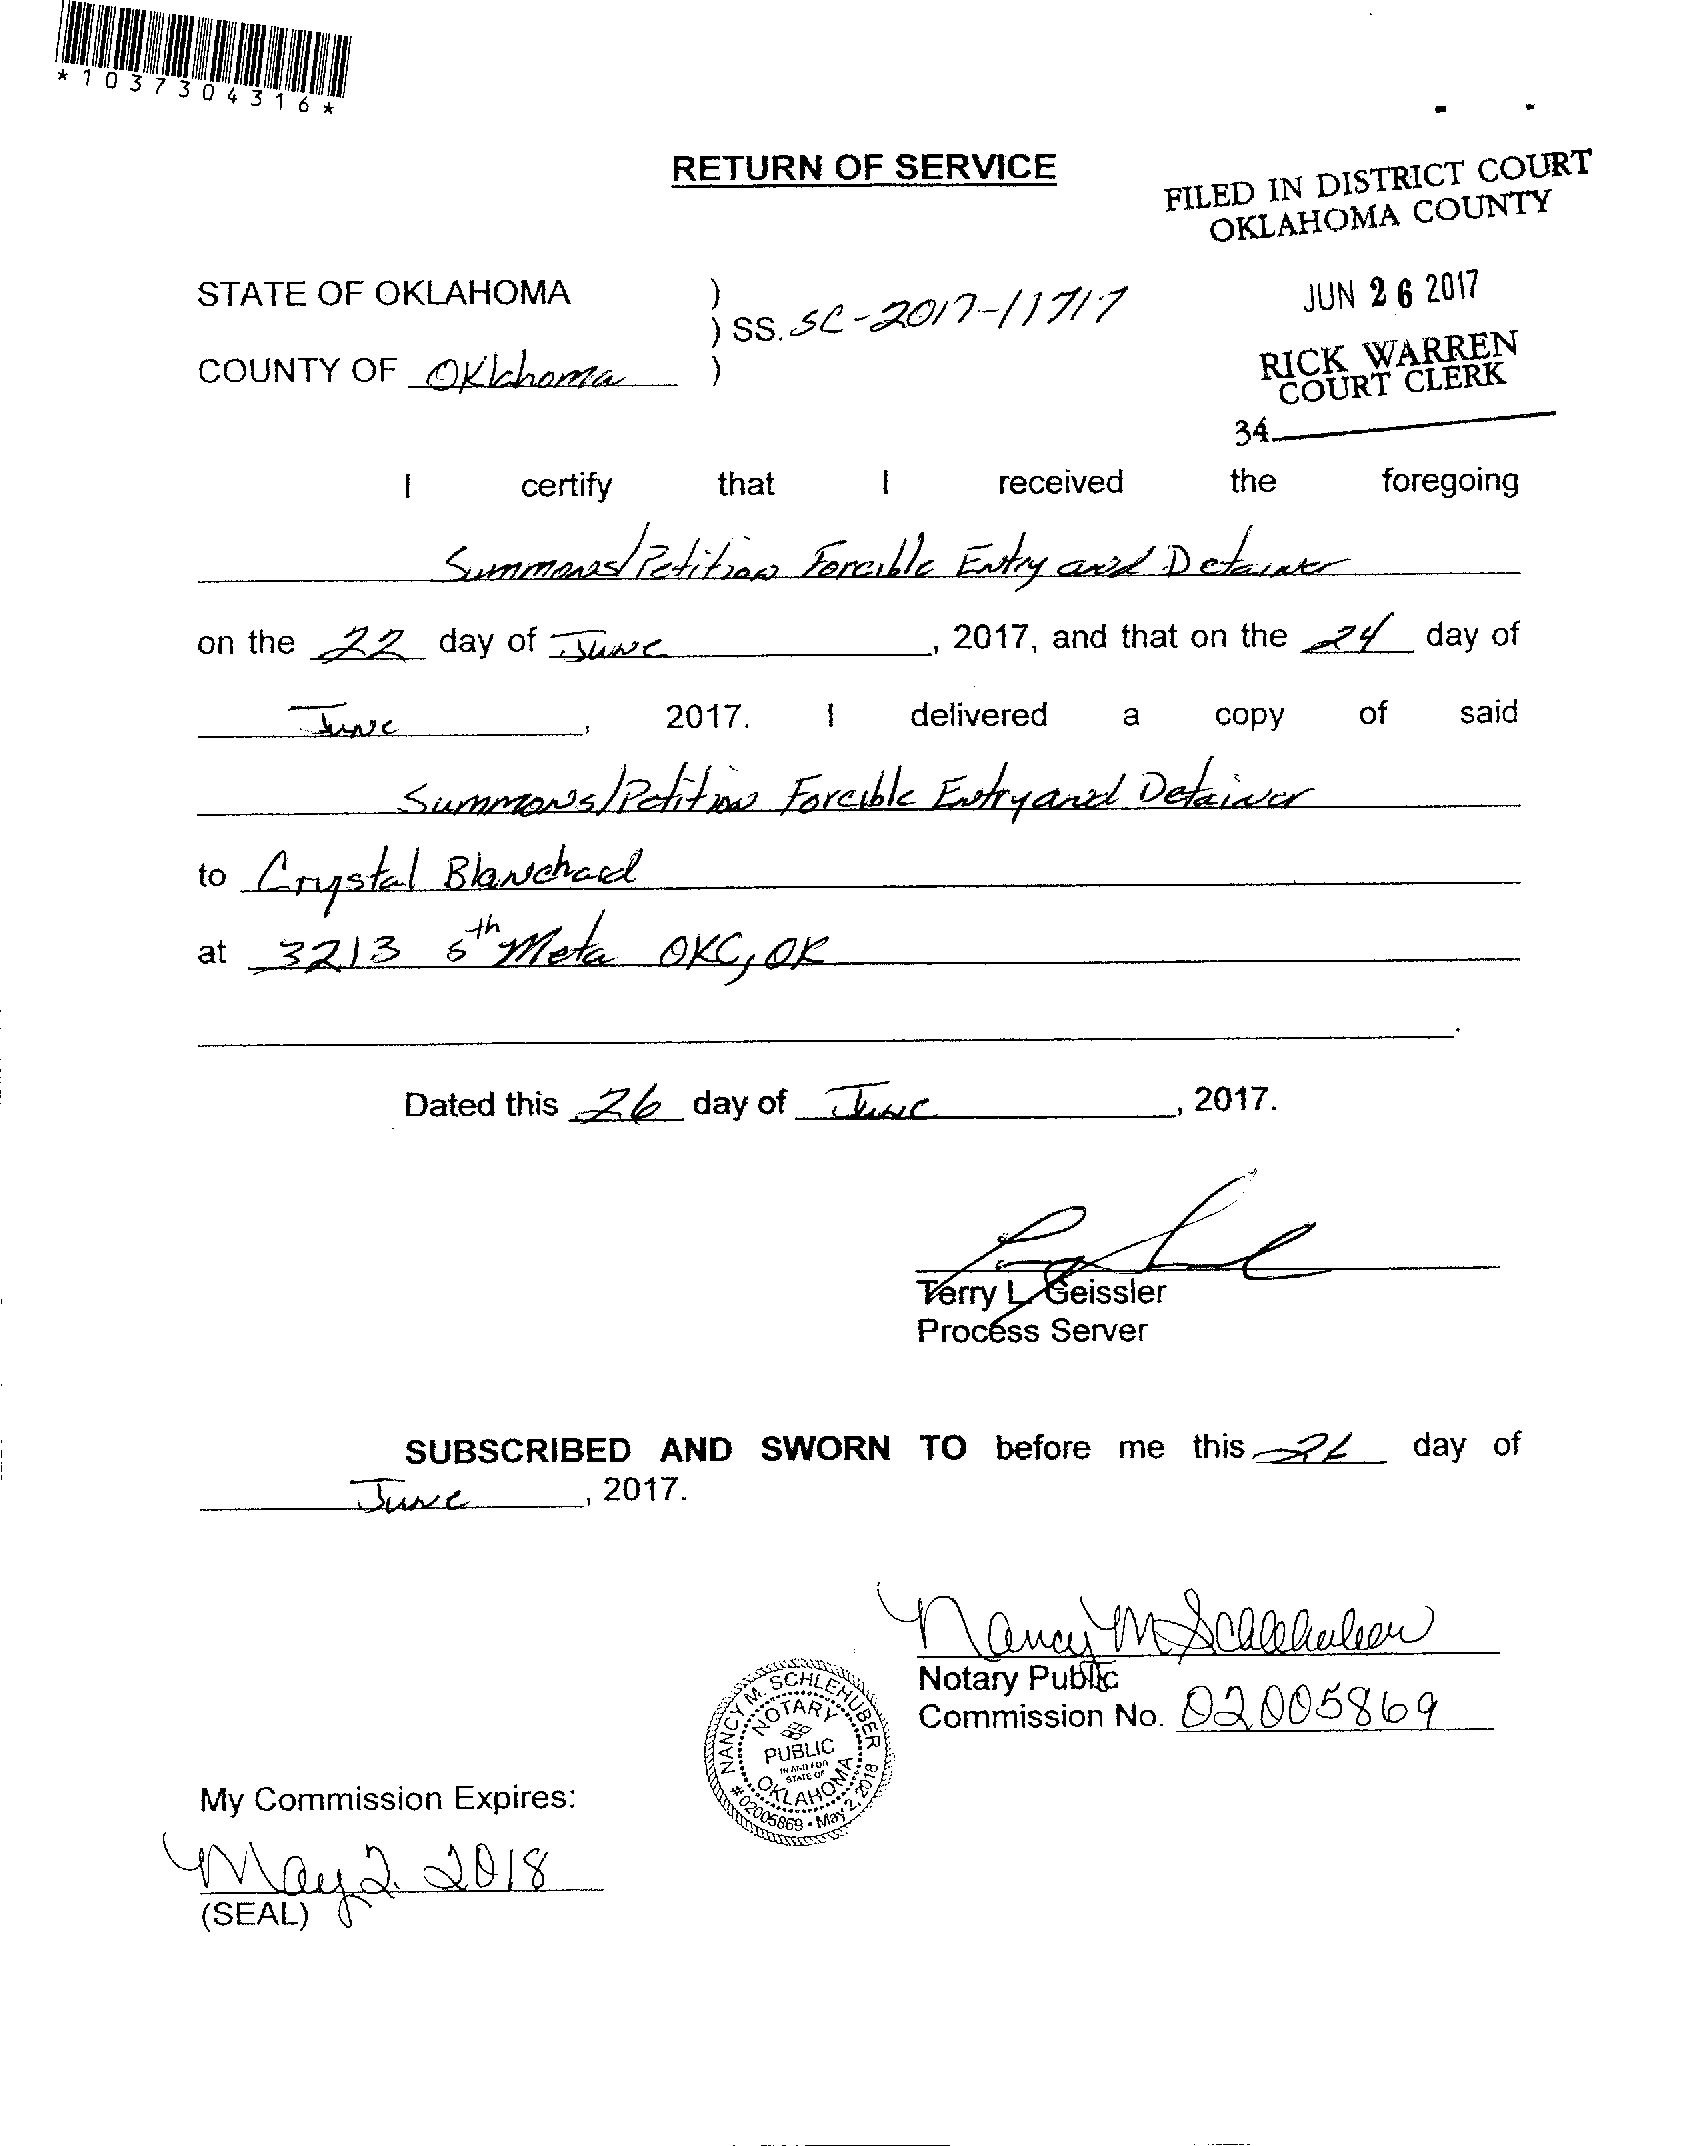 *1037304316*
RETURN OF SERVICE
FILED IN DISTRICT COURT
OKLAHOMA COUNTY
JUN 26 2017
RICK WARREN
COURT CLERK
34
STATE OF OKLAHOMA )
) SS. SC-2017-11717
COUNTY OF Oklahoma )
I certify that I received the foregoing
Summons/Petition Forcible Entry and Detainer
on the 22 day of June, 2017, and that on the 24 day of
June, 2017. I delivered a copy of said
Summons/Petition Forcible Entry and Detainer
to Crystal Blanchard
at 3213 5th Meta OKC, OK
Dated this 26 day of June, 2017.
Terry L. Geissler
Process Server
SUBSCRIBED AND SWORN TO before me this 26 day of
June, 2017.
Nancy M Schlehuber
Notary Public
Commission No. 02005869
NANCY M. SCHLEHUBER
NOTARY
PUBLIC
IN AND FOR
STATE OF
OKLAHOMA
# 02005869 • May 2, 2018
My Commission Expires:
May 2, 2018
(SEAL)